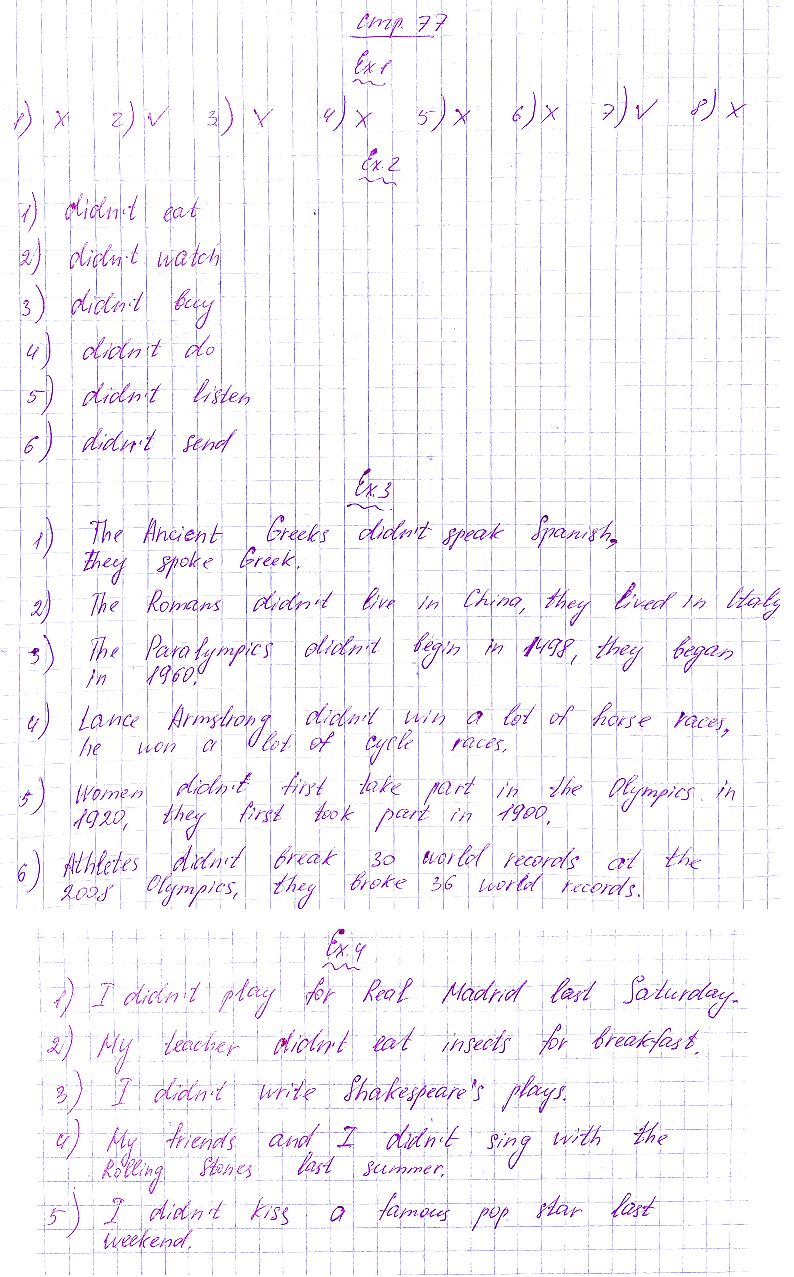 стр. 77
Ex 1
1) X 2) V 3) X 4) X 5) X 6) X 7) V 8) X
Ex. 2
1) didn't eat
2) didn't watch
3) didn't buy
4) didn't do
5) didn't listen
6) didn't send
Ex. 3
1) The Ancient Greeks didn't speak Spanish,
they spoke Greek.
2) The Romans didn't live in China, they lived in Italy
3) The Paralympics didn't begin in 1498, they began
in 1960.
4) Lance Armstrong didn't win a lot of horse races,
he won a lot of cycle races.
5) Women didn't first take part in the Olympics in
1920, they first took part in 1900.
6) Athletes didn't break 30 world records at the
2008 Olympics, they broke 36 world records.
Ex. 4
1) I didn't play for Real Madrid last Saturday.
2) My teacher didn't eat insects for breakfast.
3) I didn't write Shakespeare's plays.
4) My friends and I didn't sing with the
Rolling Stones last summer.
5) I didn't kiss a famous pop star last
weekend.